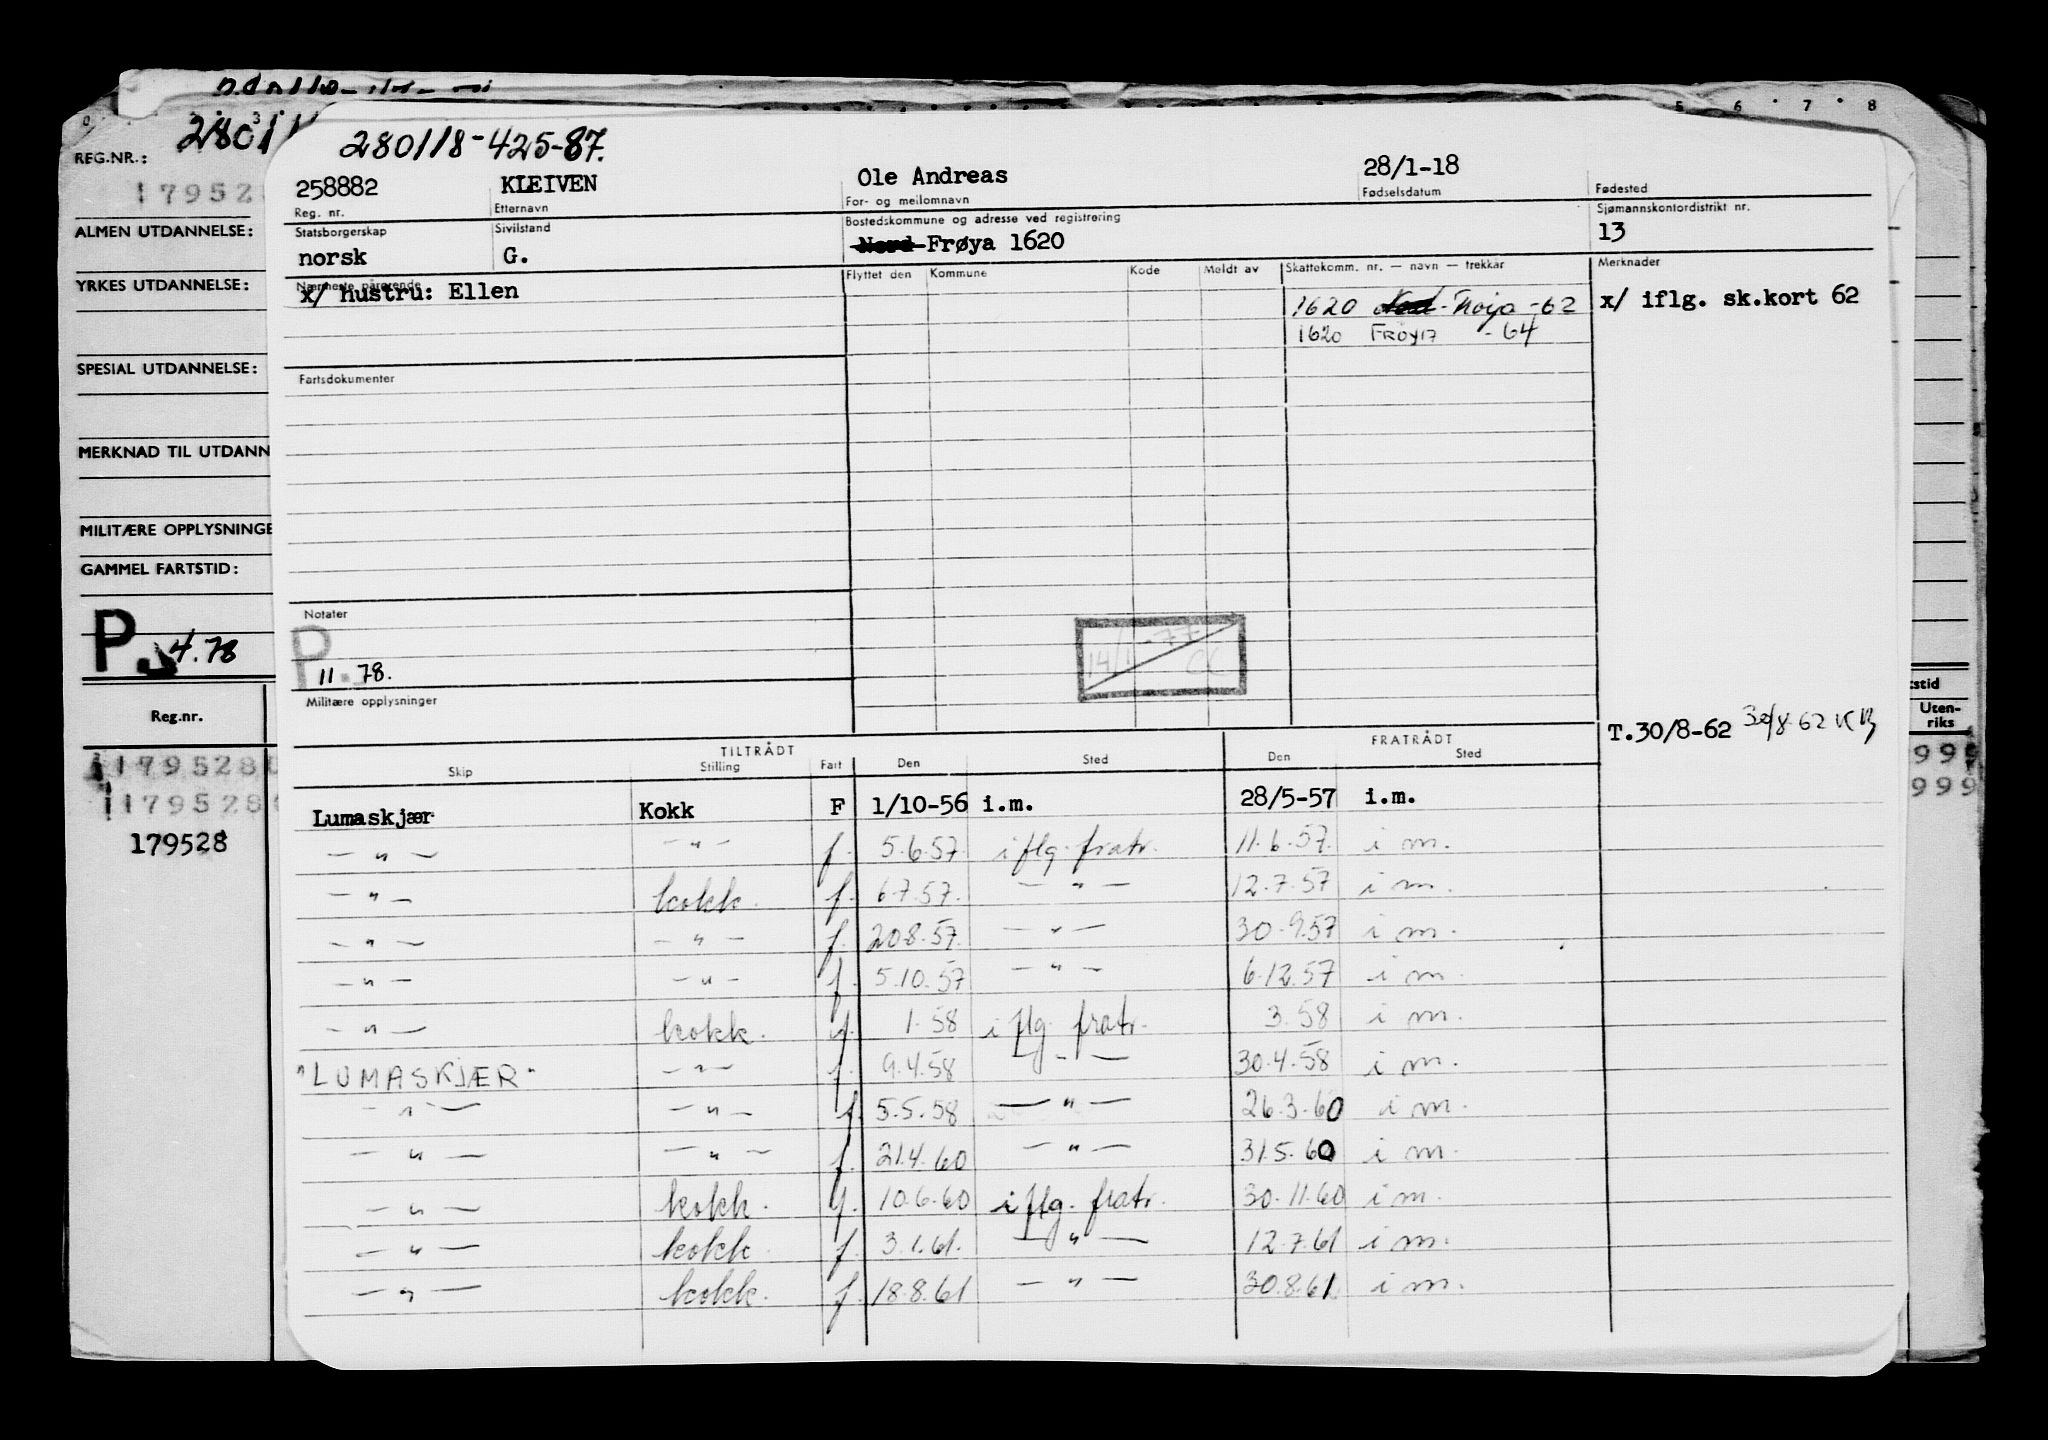 5 6 7 8
REG.NR.:
179528
ALMEN UTDANNELSE:
YRKES UTDANNELSE:
SPESIAL UTDANNELSE:
MERKNAD TIL UTDANN
MILITÆRE OPPLYSNINGE
GAMMEL FARTSTID:
P. 4.78
Reg.nr.
179528
179528
179528
280118-425-87.
258882 KLEIVEN Ole Andreas 28/1-18
Reg. nr. Etternavn For- og mellomnavn Fødselsdatum Fødested
Statsborgerskap Sivilstand Bostedskommune og adresse ved registrering Sjømannskontordistrikt nr.
norsk G. Nord-Frøya 1620 13
Nærmeste pårørende Flyttet den Kommune Kode Meldt av Skattekomm. nr. — navn — trekkår Merknader
x/ hustru: Ellen 1620 Nord-Frøya -62 x/ iflg. sk.kort 62
1620 FRØYA -64
Fartsdokumenter
Notater
P 11.78.
14/1-77
Militære opplysninger
T.30/8-62 30/8-62
TILTRÅDT FRATRÅDT
Skip Stilling Fart Den Sted Den Sted
Lumaskjær Kokk F 1/10-56 i.m. 28/5-57 i.m.
— " — — " — f. 5.6.57. iflg. fratr. 11.6.57. i m.
— " — kokk. f. 6.7.57. — " — 12.7.57 i m.
— " — — " — f. 20.8.57. — " — 30.9.57 i m.
— " — — " — f. 5.10.57 — " — 6.12.57 i m.
— " — kokk. f. 1.58 iflg. fratr. 3.58 i m.
"LUMASKJÆR" — " — f. 9.4.58 — " — 30.4.58 i m.
— " — — " — f. 5.5.58 — " — 26.3.60 i m.
— " — — " — f. 21.4.60 — " — 31.5.60 i m.
— " — kokk. f. 10.6.60 iflg. fratr. 30.11.60 i m.
— " — kokk. f. 3.1.61. — " — 12.7.61 i m.
— " — kokk. f. 18.8.61 — " — 30.8.61 i m.
stid
Uten-
riks
999
999